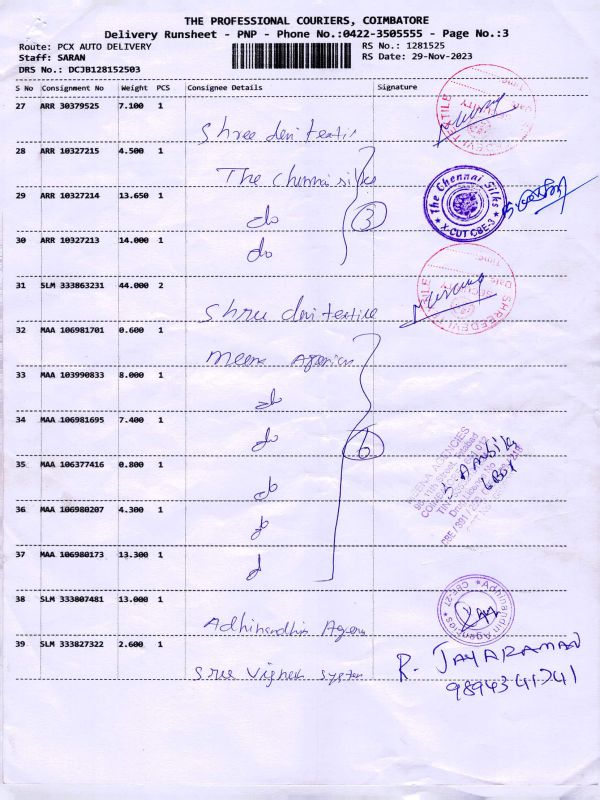 THE PROFESSIONAL COURIERS, COIMBATORE
Delivery Runsheet - PNP - Phone No.:0422-3505555 - Page No.:3
Route: PCX AUTO DELIVERY RS No.: 1281525
Staff: SARAN RS Date: 29-Nov-2023
DRS No.: DCJB128152503
S No Consignment No Weight PCS Consignee Details Signature
27 ARR 30379525 7.100 1
Shree devi textile
28 ARR 10327215 4.500 1
The Chennai silks
29 ARR 10327214 13.650 1
do
3
The Chennai Silks
X-CUT CBE-3
30 ARR 10327213 14.000 1
do
31 SLM 333863231 44.000 2
Shree devi textile
SHREEDEVI TEXTILE
32 MAA 106981701 0.600 1
Meena Agencies
33 MAA 103990833 8.000 1
do
34 MAA 106981695 7.400 1
do
6
MEENA AGENCIES
35 MAA 106377416 0.800 1
do
36 MAA 106980207 4.300 1
do
37 MAA 106980173 13.300 1
do
38 SLM 333807481 13.000 1
Agencies
CBE-27
39 SLM 333827322 2.600 1
Sree Vignesh System
R. JAYARAMAN